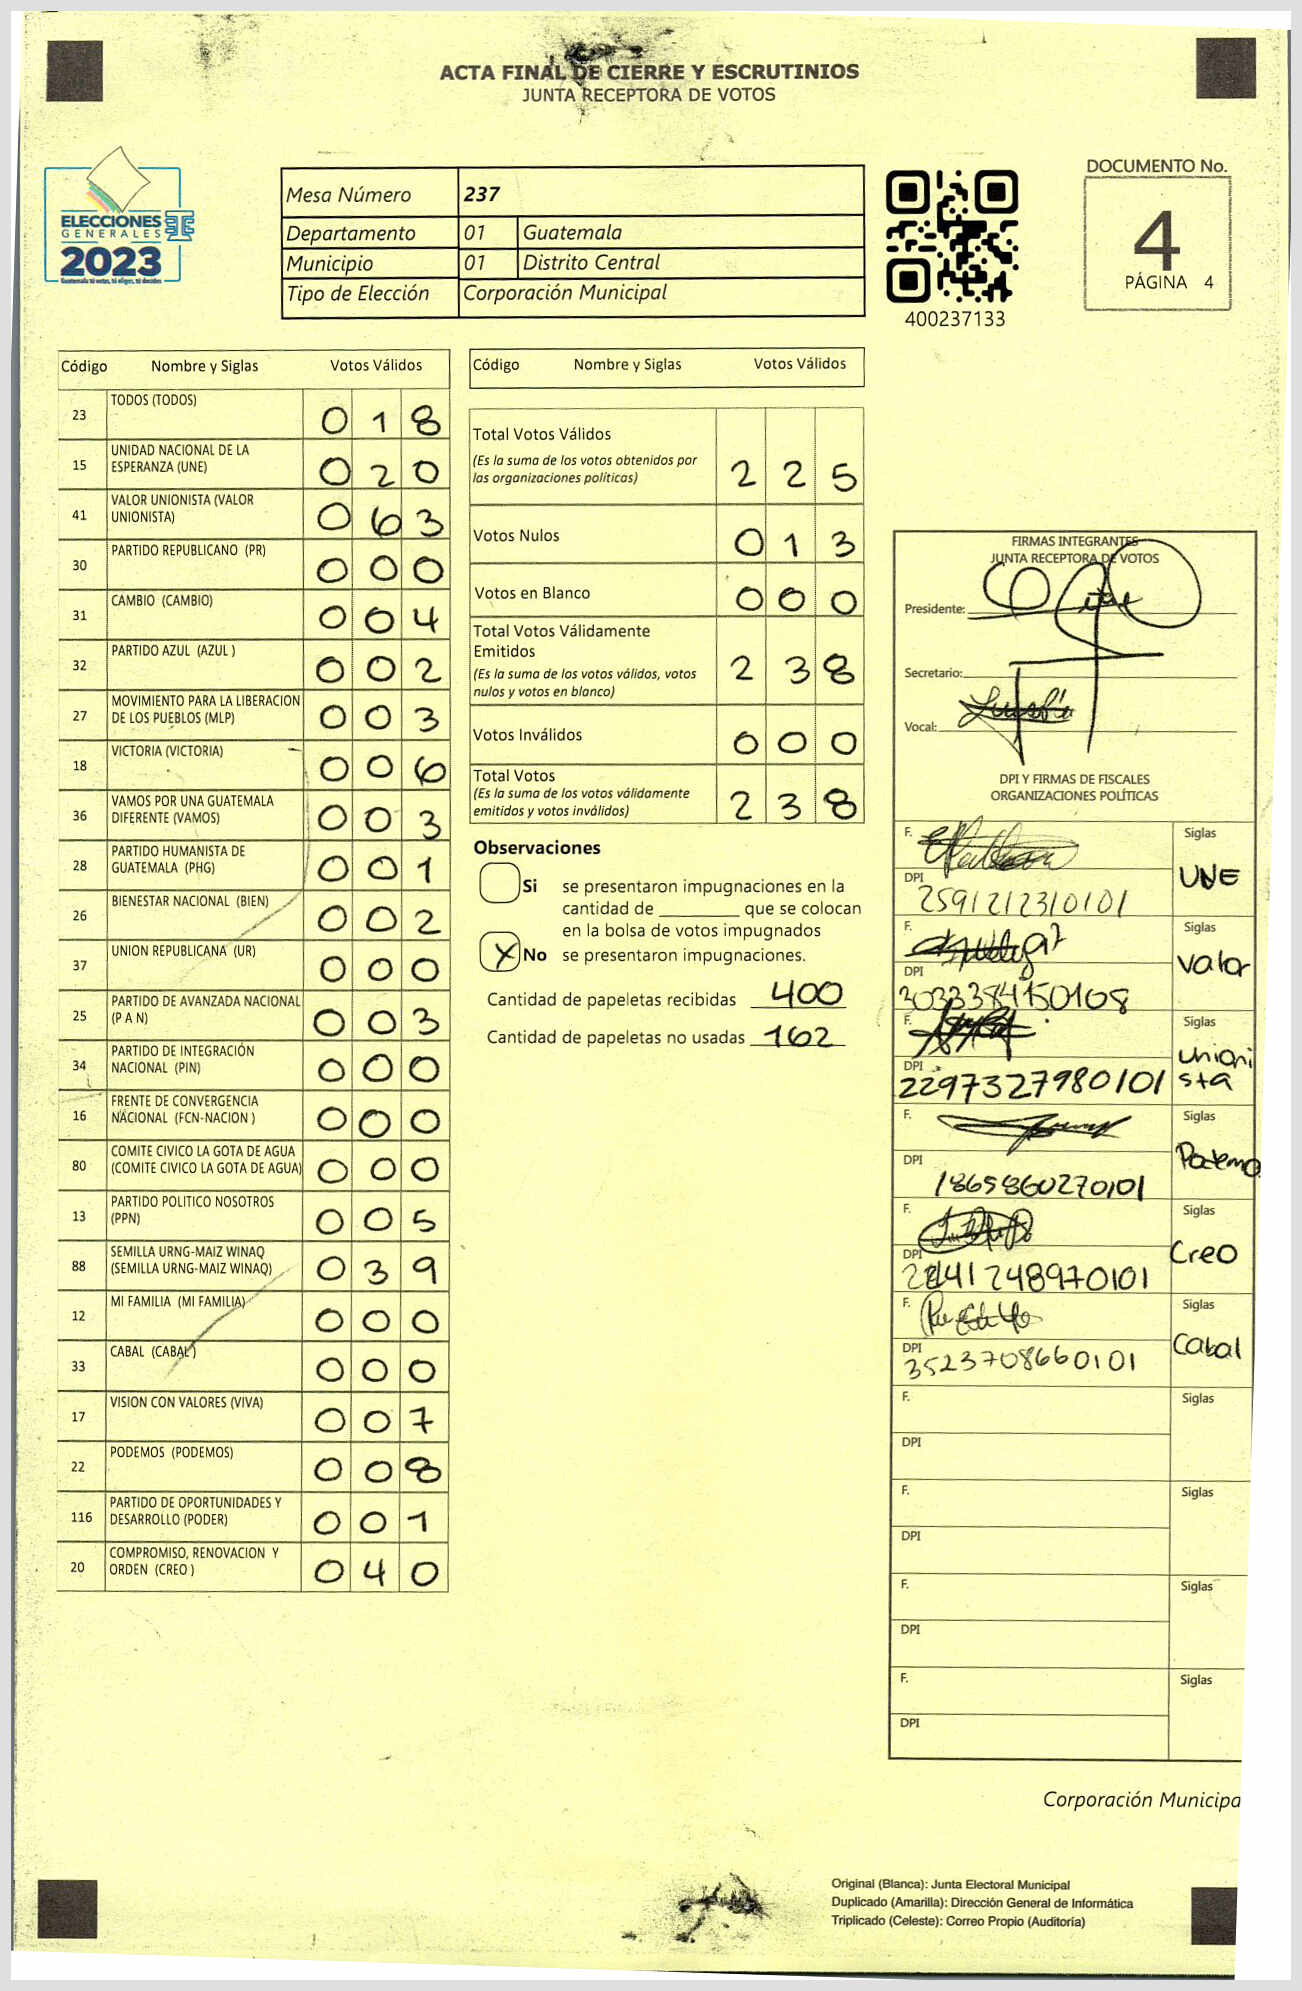 ACTA FINAL DE CIERRE Y ESCRUTINIOS
JUNTA RECEPTORA DE VOTOS
ELECCIONES
GENERALES
2023
Guatemala tú votas, tú eliges, tú decides
Mesa Número 237
Departamento 01 Guatemala
Municipio 01 Distrito Central
Tipo de Elección Corporación Municipal
400237133
DOCUMENTO No.
4
PÁGINA 4
Código Nombre y Siglas Votos Válidos
23 TODOS (TODOS) 0 1 8
15 UNIDAD NACIONAL DE LA
ESPERANZA (UNE) 0 2 0
41 VALOR UNIONISTA (VALOR
UNIONISTA) 0 6 3
30 PARTIDO REPUBLICANO (PR) 0 0 0
31 CAMBIO (CAMBIO) 0 0 4
32 PARTIDO AZUL (AZUL ) 0 0 2
27 MOVIMIENTO PARA LA LIBERACION
DE LOS PUEBLOS (MLP) 0 0 3
18 VICTORIA (VICTORIA) 0 0 6
36 VAMOS POR UNA GUATEMALA
DIFERENTE (VAMOS) 0 0 3
28 PARTIDO HUMANISTA DE
GUATEMALA (PHG) 0 0 1
26 BIENESTAR NACIONAL (BIEN) 0 0 2
37 UNION REPUBLICANA (UR) 0 0 0
25 PARTIDO DE AVANZADA NACIONAL
(P A N) 0 0 3
34 PARTIDO DE INTEGRACIÓN
NACIONAL (PIN) 0 0 0
16 FRENTE DE CONVERGENCIA
NACIONAL (FCN-NACION ) 0 0 0
80 COMITE CIVICO LA GOTA DE AGUA
(COMITE CIVICO LA GOTA DE AGUA) 0 0 0
13 PARTIDO POLITICO NOSOTROS
(PPN) 0 0 5
88 SEMILLA URNG-MAIZ WINAQ
(SEMILLA URNG-MAIZ WINAQ) 0 3 9
12 MI FAMILIA (MI FAMILIA) 0 0 0
33 CABAL (CABAL ) 0 0 0
17 VISION CON VALORES (VIVA) 0 0 7
22 PODEMOS (PODEMOS) 0 0 8
116 PARTIDO DE OPORTUNIDADES Y
DESARROLLO (PODER) 0 0 1
20 COMPROMISO, RENOVACION Y
ORDEN (CREO ) 0 4 0
Código Nombre y Siglas Votos Válidos
Total Votos Válidos
(Es la suma de los votos obtenidos por
las organizaciones políticas) 2 2 5
Votos Nulos 0 1 3
Votos en Blanco 0 0 0
Total Votos Válidamente
Emitidos
(Es la suma de los votos válidos, votos
nulos y votos en blanco) 2 3 8
Votos Inválidos 0 0 0
Total Votos
(Es la suma de los votos válidamente
emitidos y votos inválidos) 2 3 8
Observaciones
Si se presentaron impugnaciones en la
cantidad de ________ que se colocan
en la bolsa de votos impugnados
X No se presentaron impugnaciones.
Cantidad de papeletas recibidas 400
Cantidad de papeletas no usadas 162
FIRMAS INTEGRANTES
JUNTA RECEPTORA DE VOTOS
Presidente:
Secretario:
Vocal:
DPI Y FIRMAS DE FISCALES
ORGANIZACIONES POLÍTICAS
F. Siglas
UNE
DPI
2591212310101
F. Siglas
Valor
DPI
3033384150108
F. Siglas
Unioni
sta
DPI
2297327980101
F. Siglas
Podemo
DPI
1865860270101
F. Siglas
Creo
DPI
F. Siglas
Cabal
DPI
3523708660101
F. Siglas
DPI
F. Siglas
DPI
F. Siglas
DPI
F. Siglas
DPI
Corporación Municipa
Original (Blanca): Junta Electoral Municipal
Duplicado (Amarilla): Dirección General de Informática
Triplicado (Celeste): Correo Propio (Auditoría)